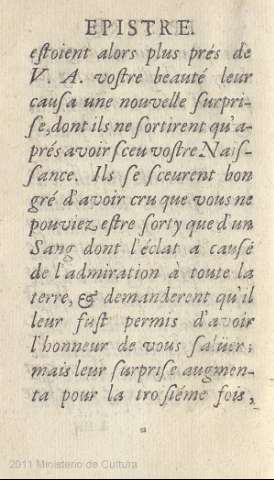 EPISTRE.
eſtoient alors plus prés de
V. A. voſtre beauté leur
cauſa une nouvelle ſurpri-
ſe, dont ils ne ſortirent qu'a-
prés avoir ſceu voſtre Naiſ-
ſance. Ils ſe ſceurent bon
gré d'avoir cru que vous ne
pouviez eſtre ſorty que d'un
Sang dont l'éclat a cauſé
de l'admiration à toute la
terre, & demanderent qu'il
leur fuſt permis d'avoir
l'honneur de vous ſalüer;
mais leur ſurpriſe augmen-
ta pour la troiſiéme fois,
2011 Ministerio de Cultura